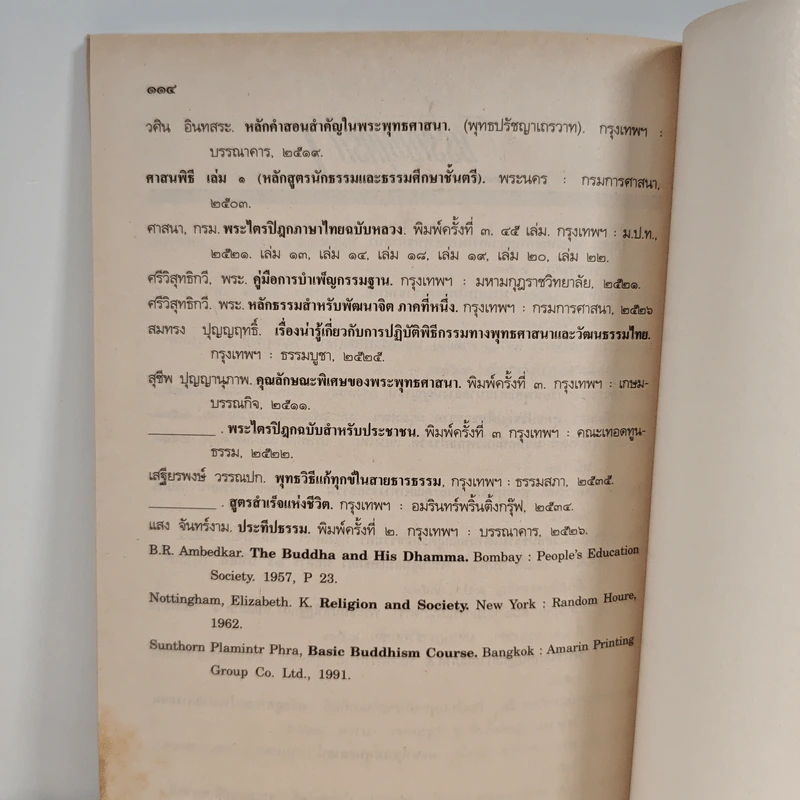 ๑๑๔
วศิน อินทสระ. หลักคำสอนสำคัญในพระพุทธศาสนา. (พุทธปรัชญาเถรวาท). กรุงเทพฯ :
บรรณาคาร, ๒๕๑๙.
ศาสนพิธี เล่ม ๑ (หลักสูตรนักธรรมและธรรมศึกษาชั้นตรี). พระนคร : กรมการศาสนา,
๒๕๐๓.
ศาสนา, กรม. พระไตรปิฎกภาษาไทยฉบับหลวง. พิมพ์ครั้งที่ ๓. ๔๕ เล่ม. กรุงเทพฯ : ม.ป.ท.,
๒๕๒๑. เล่ม ๑๓, เล่ม ๑๔, เล่ม ๑๘, เล่ม ๑๙, เล่ม ๒๐, เล่ม ๒๒.
ศรีวิสุทธิกวี, พระ. คู่มือการบำเพ็ญกรรมฐาน. กรุงเทพฯ : มหามกุฎราชวิทยาลัย, ๒๕๒๑.
ศรีวิสุทธิกวี. พระ. หลักธรรมสำหรับพัฒนาจิต ภาคที่หนึ่ง. กรุงเทพฯ : กรมการศาสนา, ๒๕๒๖
สมทรง ปุญญฤทธิ์. เรื่องน่ารู้เกี่ยวกับการปฏิบัติพิธีกรรมทางพุทธศาสนาและวัฒนธรรมไทย.
กรุงเทพฯ : ธรรมบูชา, ๒๕๒๕.
สุชีพ ปุญญานุภาพ. คุณลักษณะพิเศษของพระพุทธศาสนา. พิมพ์ครั้งที่ ๓. กรุงเทพฯ : เกษม-
บรรณกิจ, ๒๕๑๑.
________ . พระไตรปิฎกฉบับสำหรับประชาชน. พิมพ์ครั้งที่ ๓ กรุงเทพฯ : คณะเทอดทูน-
ธรรม, ๒๕๒๒.
เสฐียรพงษ์ วรรณปก. พุทธวิธีแก้ทุกข์ในสายธารธรรม, กรุงเทพฯ : ธรรมสภา, ๒๕๓๕.
________ . สูตรสำเร็จแห่งชีวิต. กรุงเทพฯ : อมรินทร์พริ้นติ้งกรุ๊ฟ, ๒๕๓๔.
แสง จันทร์งาม. ประทีปธรรม. พิมพ์ครั้งที่ ๒. กรุงเทพฯ : บรรณาคาร, ๒๕๒๖.
B.R. Ambedkar. The Buddha and His Dhamma. Bombay : People's Education
Society. 1957, P 23.
Nottingham, Elizabeth. K. Religion and Society. New York : Random Houre,
1962.
Sunthorn Plamintr Phra, Basic Buddhism Course. Bangkok : Amarin Printing
Group Co. Ltd., 1991.